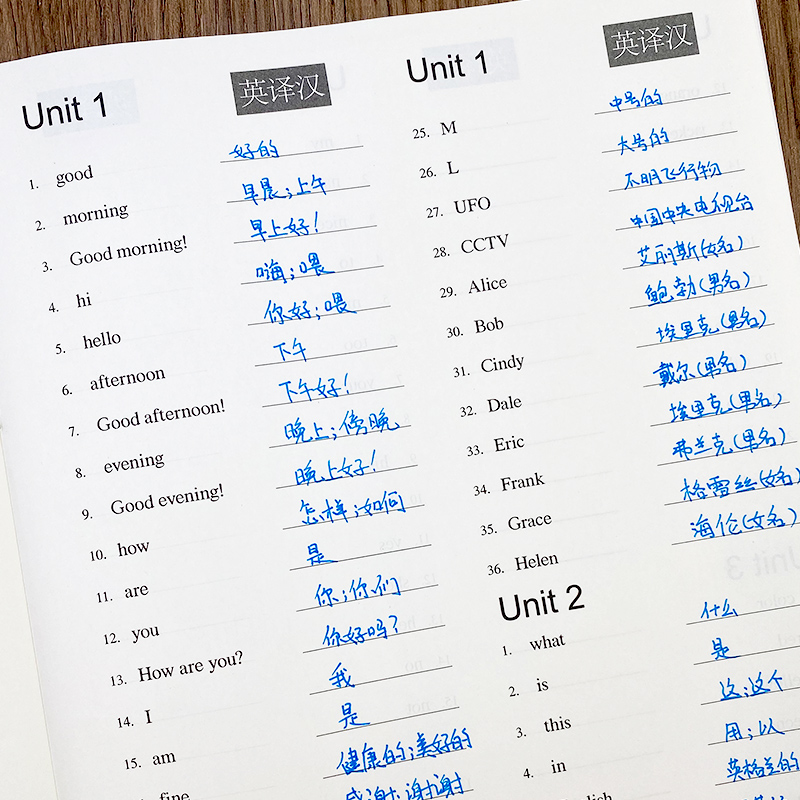 Unit 1 英译汉
1. good 好的
2. morning 早晨;上午
3. Good morning! 早上好!
4. hi 嗨;喂
5. hello 你好;喂
6. afternoon 下午
7. Good afternoon! 下午好!
8. evening 晚上;傍晚
9. Good evening! 晚上好!
10. how 怎样;如何
11. are 是
12. you 你;你们
13. How are you? 你好吗?
14. I 我
15. am 是
fine 健康的;美好的
感谢;谢谢
Unit 1 英译汉
25. M 中号的
26. L 大号的
27. UFO 不明飞行物
28. CCTV 中国中央电视台
29. Alice 艾丽斯(女名)
30. Bob 鲍勃(男名)
31. Cindy 埃里克(男名)
32. Dale 戴尔(男名)
33. Eric 埃里克(男名)
34. Frank 弗兰克(男名)
35. Grace 格雷丝(女名)
36. Helen 海伦(女名)
Unit 2
1. what 什么
2. is 是
3. this 这;这个
4. in 用;以
英格兰的